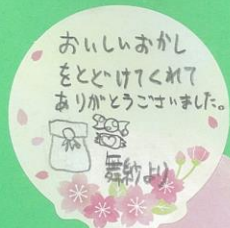 おいしいおかし
をとどけてくれて
ありがとうございました。
舞紗より